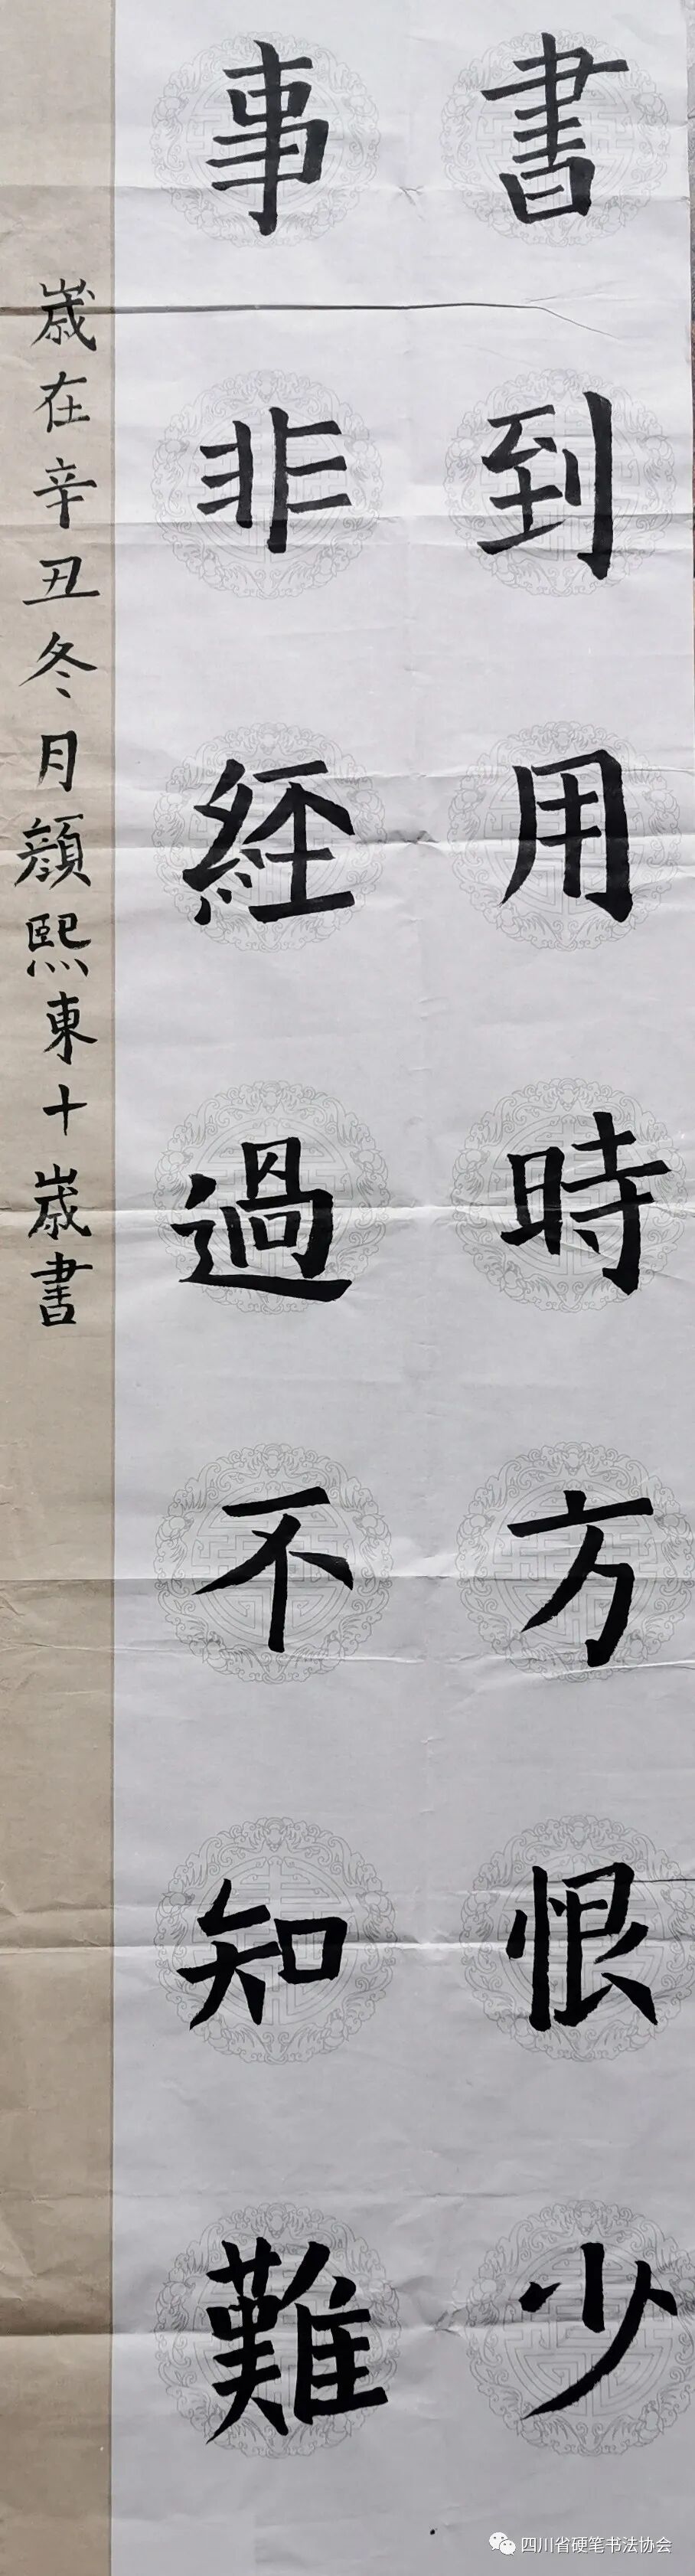 書到用時方恨少
事非經過不知難
歲在辛丑冬月顏熙東十歲書
四川省硬笔书法协会